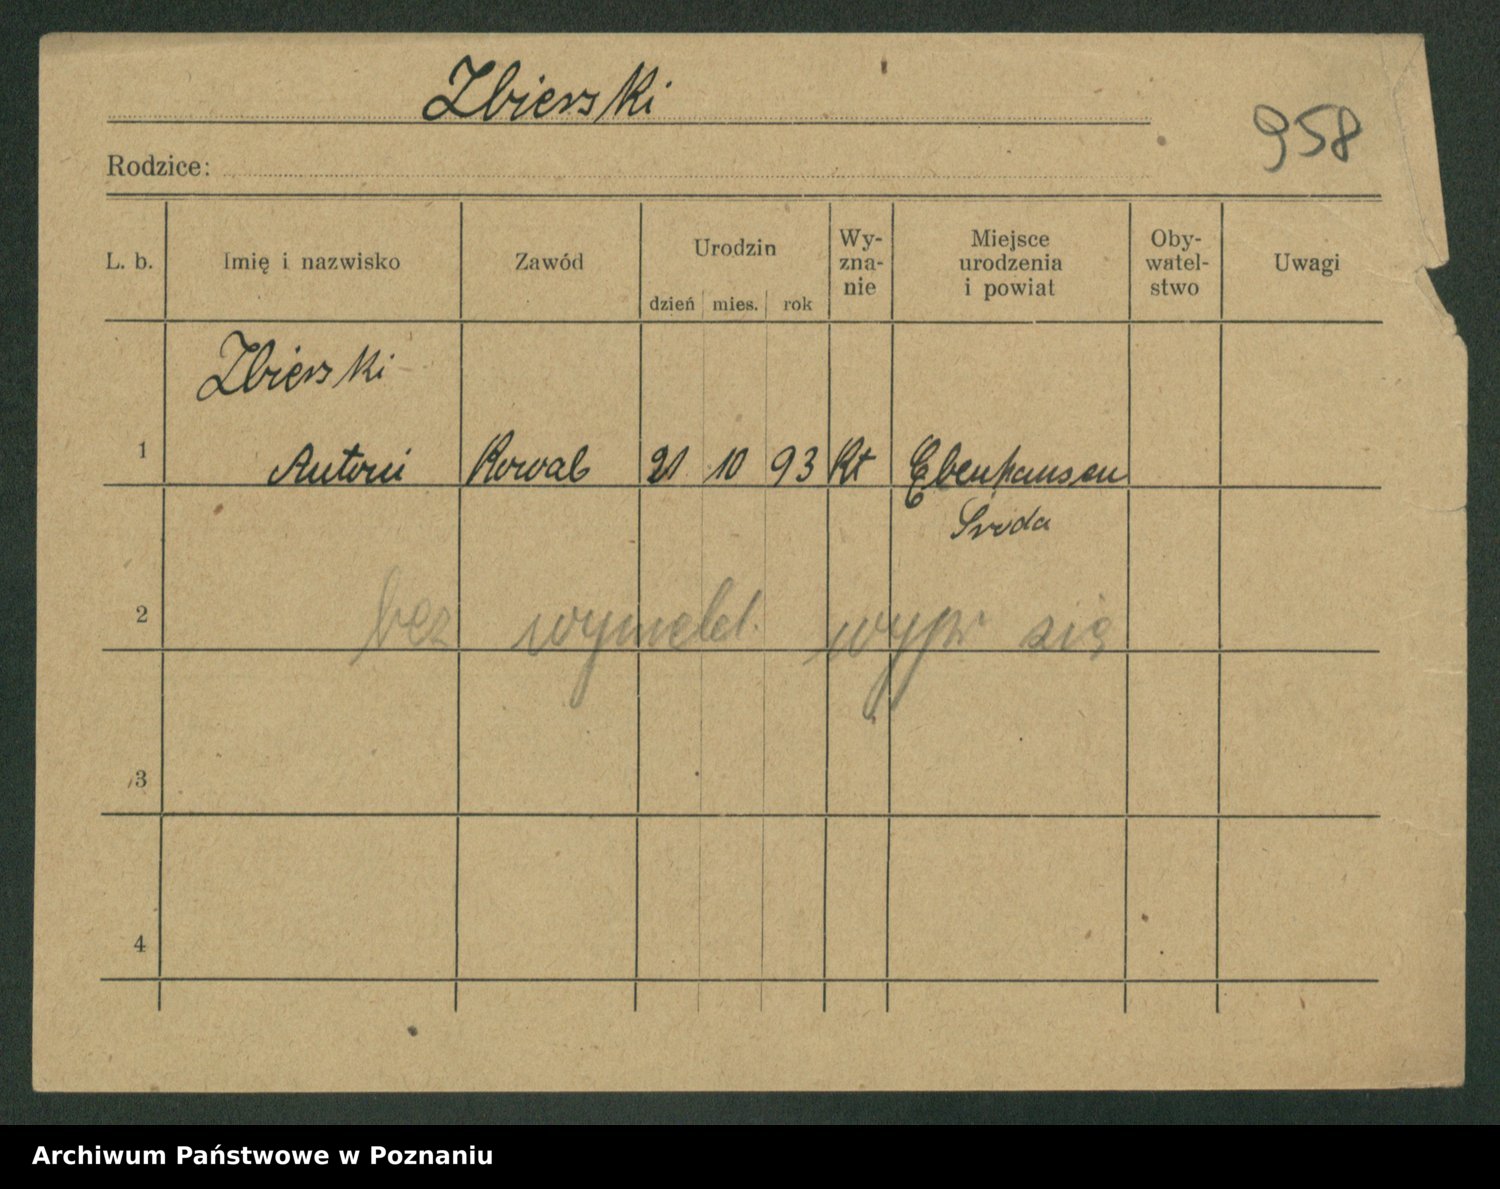 Zbierski
958
Rodzice:
L. b. Imię i nazwisko Zawód Urodzin dzień mies. rok Wy-zna-nie Miejsce urodzenia i powiat Oby-watel-stwo Uwagi
Zbierski
1 Antoni Kowal 21 10 93 Kt Ebenhausen
Sroda
2 bez wymeld. wypr się
3
4
Archiwum Państwowe w Poznaniu